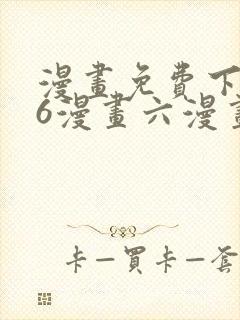 漫畫免費下
6漫畫六漫畫
卡—買卡—套